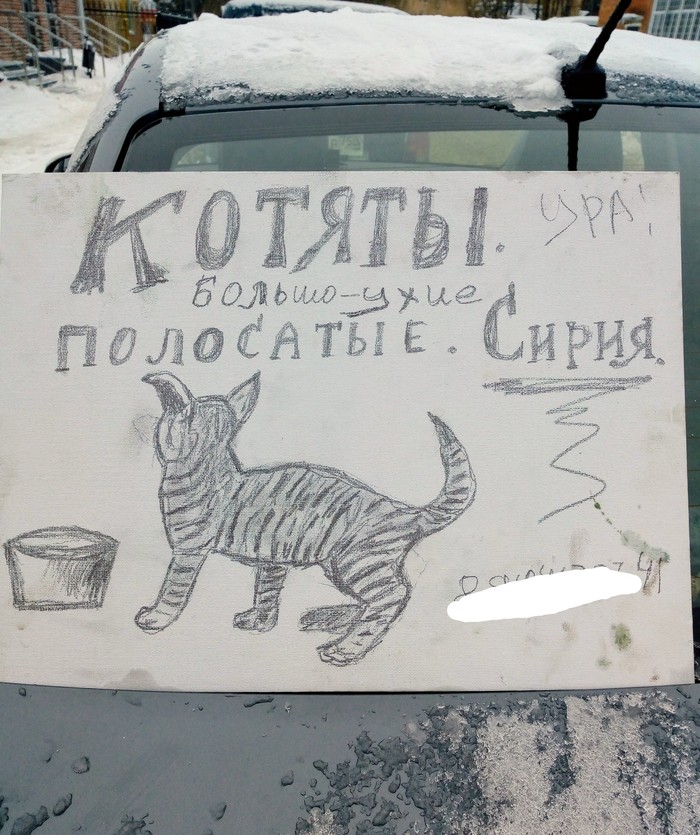 КОТЯТЫ. УРА!
БОЛЬШО-УХИЕ
ПОЛОСАТЫЕ. СИРИЯ.